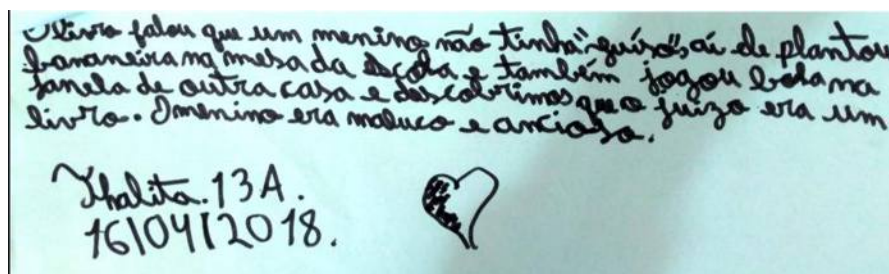 O livro falou que um menino não tinha "guizo", aí ele plantou
bananeira na mesa da escola e também jogou bola na
janela de outra casa e descobrimos que o juizo era um
livro. O menino era maluco e ancioso.
Thalita. 13 A.
16/04/2018.